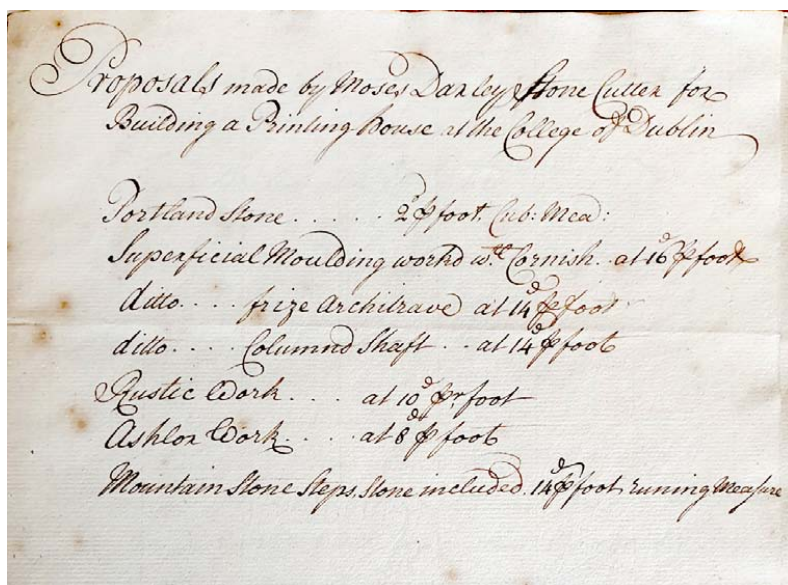 Proposals made by Moses Darley Stone Cutter for
Building a Printing House at the College of Dublin
Portland Stone . . . . . 2 ꝑ foot. Cub: Mea:
Superficial Moulding workd wth Cornish . . at 16d ꝑ foot
ditto . . . . frize Architrave at 14d ꝑ foot
ditto . . . . Columnd Shaft . . at 14d ꝑ foot
Rustic Work . . . . at 10d ꝑr foot
Ashlor Work . . . . at 8d ꝑ foot
Mountain Stone Steps, Stone included. 14d ꝑ foot runing Measure